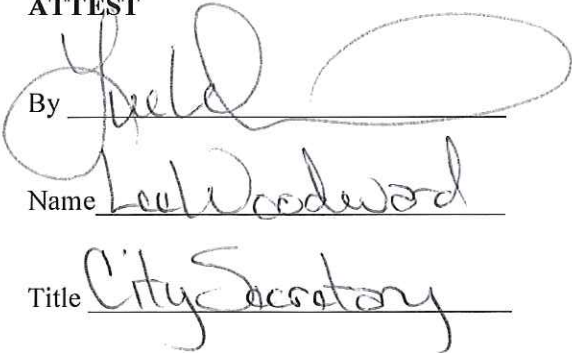 ATTEST
By
Name Lee Woodward
Title City Secretary